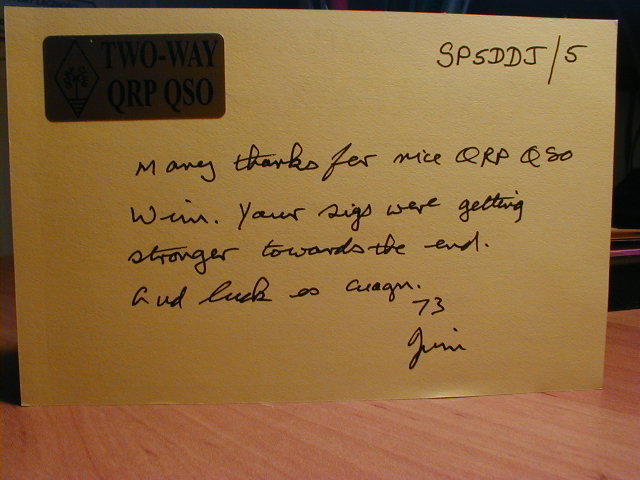 TWO-WAY
QRP QSO
SP5DDJ/5
Many thanks fer nice QRP QSO
Wim. Your sigs were getting
stronger towards the end.
Gud luck es cuagn.
73
Jim